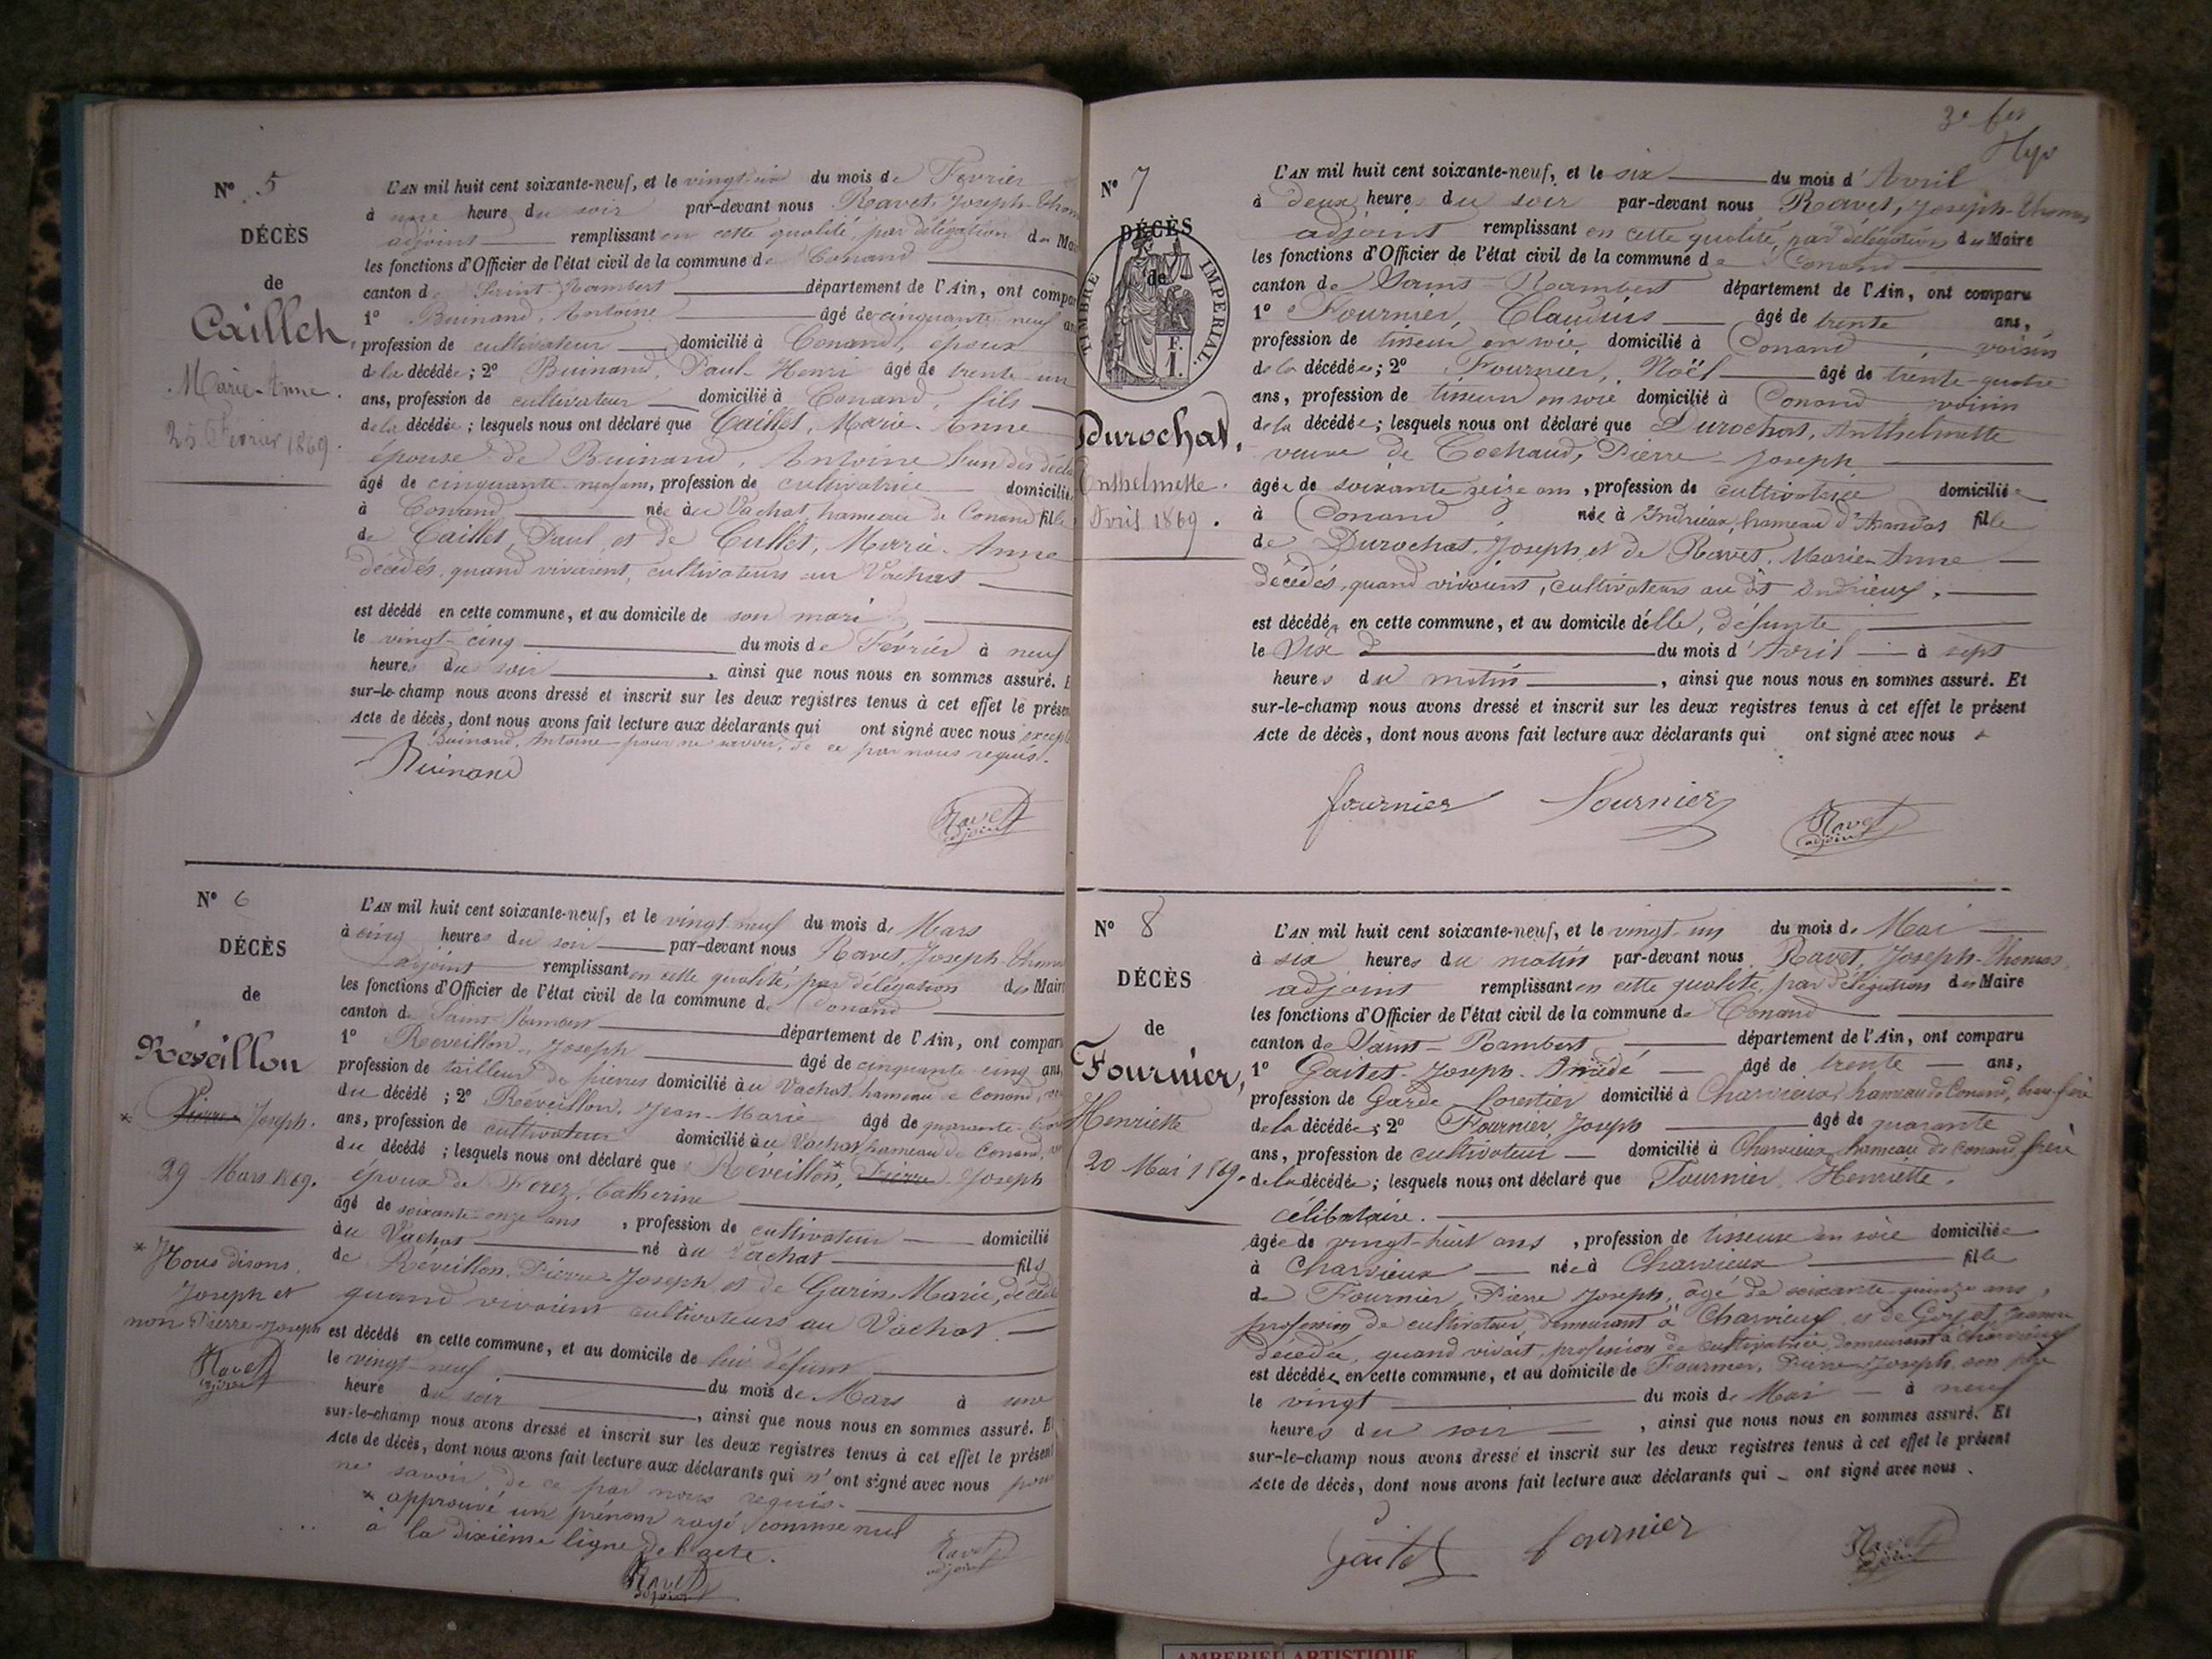 N° 5
DÉCÈS
de
Caillet,
Marie-Anne.
25 Février 1869.
L'AN mil huit cent soixante-neuf, et le vingt-six du mois de Février
à une heure du soir par-devant nous Ravet, Joseph-Thom
adjoint remplissant en cette qualité, par délégation du Mai
les fonctions d'Officier de l'état civil de la commune de Conand
canton de Saint-Rambert département de l'Ain, ont compar
1° Buinand, Antoine âgé de cinquante neuf an
profession de cultivateur domicilié à Conand, époux
de la décédée; 2° Buinand, Paul-Henri âgé de trente-un
ans, profession de cultivateur domicilié à Conand, fils
de la décédée; lesquels nous ont déclaré que Caillet, Marie-Anne
épouse de Buinand, Antoine l'un des décla
âgé de cinquante-neuf ans, profession de cultivatrice domicilié
à Conand née au Vachat, hameau de Conand fille
de Caillet, Paul et de Cullet, Marie-Anne
décédés, quand vivaient, cultivateurs au Vachat
est décédé en cette commune, et au domicile de son mari
le vingt-cinq du mois de Février à neuf
heures du soir, ainsi que nous nous en sommes assuré. E
sur-le-champ nous avons dressé et inscrit sur les deux registres tenus à cet effet le présen
Acte de décès, dont nous avons fait lecture aux déclarants qui ont signé avec nous except
Buinand, Antoine pour ne savoir, de ce par nous requis.
Buinand
Ravet
adjoint
N° 6
DÉCÈS
de
Réveillon
* Pierre Joseph.
29 Mars 1869.
* Nous disons,
Joseph et
non Pierre-Joseph
Ravet
adjoint
L'AN mil huit cent soixante-neuf, et le vingt neuf du mois de Mars
à cinq heures du soir par-devant nous Ravet, Joseph-Thomas
adjoint remplissant en cette qualité, par délégation du Maire
les fonctions d'Officier de l'état civil de la commune de Conand
canton de Saint-Rambert département de l'Ain, ont comparu
1° Réveillon, Joseph âgé de cinquante-cinq ans,
profession de tailleur de pierres domicilié au Vachat, hameau de Conand,
du décédé; 2° Réveillon, Jean-Marie âgé de quarante-
ans, profession de cultivateur domicilié au Vachat, hameau de Conand,
du décédé; lesquels nous ont déclaré que Réveillon,* Pierre-Joseph
époux de Catherine
âgé de soixante-onze ans, profession de cultivateur domicilié
au Vachat né au Vachat fils
de Réveillon, Pierre-Joseph et de Garin, Marie, décédés
quand vivaient cultivateurs au Vachat.
est décédé en cette commune, et au domicile de lui défunt
le vingt-neuf du mois de Mars à une
heure du soir, ainsi que nous nous en sommes assuré. Et
sur-le-champ nous avons dressé et inscrit sur les deux registres tenus à cet effet le présent
Acte de décès, dont nous avons fait lecture aux déclarants qui n'ont signé avec nous pour
ne savoir, de ce par nous requis.
* approuvé un prénom rayé comme nul
à la dixième ligne de l'acte.
Ravet
adjoint
Ravet
adjoint
N° 7
DÉCÈS
de
TIMBRE IMPÉRIAL.
1 F.
Durochat,
Anthelmette.
Avril 1869.
L'AN mil huit cent soixante-neuf, et le six du mois d'Avril
à deux heures du soir par-devant nous Ravet, Joseph-Thomas
adjoint remplissant en cette qualité, par délégation du Maire
les fonctions d'Officier de l'état civil de la commune de Conand
canton de Saint-Rambert département de l'Ain, ont comparu
1° Fournier, Claudius âgé de trente ans,
profession de tisseur en soie domicilié à Conand, voisin
de la décédée; 2° Fournier, Noël âgé de trente-quatre
ans, profession de tisseur en soie domicilié à Conand voisin
de la décédée; lesquels nous ont déclaré que Durochat, Anthelmette
veuve de Cochaud, Pierre-Joseph
âgée de soixante seize ans, profession de cultivatrice domiciliée
à Conand, née à Indrieux, hameau d'Arandas fille
de Durochat, Joseph et de Ravet, Marie-Anne
décédés, quand vivaient, cultivateurs au dit Indrieux,
est décédée en cette commune, et au domicile d'elle, défunte
le six du mois d'Avril à sept
heures du matin, ainsi que nous nous en sommes assuré. Et
sur-le-champ nous avons dressé et inscrit sur les deux registres tenus à cet effet le présent
Acte de décès, dont nous avons fait lecture aux déclarants qui ont signé avec nous
fournier Fournier Ravet
adjoint
N° 8
DÉCÈS
de
Fournier,
Henriette
20 Mai 1869.
L'AN mil huit cent soixante-neuf, et le vingt-un du mois de Mai
à six heures du matin par-devant nous Ravet, Joseph-Thomas,
adjoint remplissant en cette qualité, par délégation du Maire
les fonctions d'Officier de l'état civil de la commune de Conand
canton de Saint-Rambert département de l'Ain, ont comparu
1° Gaitet, Joseph-Amédé âgé de trente ans,
profession de Garde-forestier domicilié à Charvieux, hameau de Conand, beau-frère
de la décédée; 2° Fournier, Joseph âgé de quarante
ans, profession de cultivateur domicilié à Charvieux, hameau de Conand, frère
de la décédée; lesquels nous ont déclaré que Fournier, Henriette,
célibataire.
âgée de vingt-huit ans, profession de tisseuse en soie domiciliée
à Charvieux née à Charvieux fille
de Fournier, Pierre Joseph, âgé de soixante quinze ans,
profession de cultivateur, demeurant à Charvieux et de Jeanne
décédée, quand vivait, profession de cultivatrice, demeurant à Charvieux
est décédée en cette commune, et au domicile de Fournier, Pierre-Joseph, son père
le vingt du mois de Mai à neuf
heures du soir, ainsi que nous nous en sommes assuré. Et
sur-le-champ nous avons dressé et inscrit sur les deux registres tenus à cet effet le présent
Acte de décès, dont nous avons fait lecture aux déclarants qui ont signé avec nous.
Gaitet fournier Ravet
adjoint
AMBERIEU ARTISTIQUE